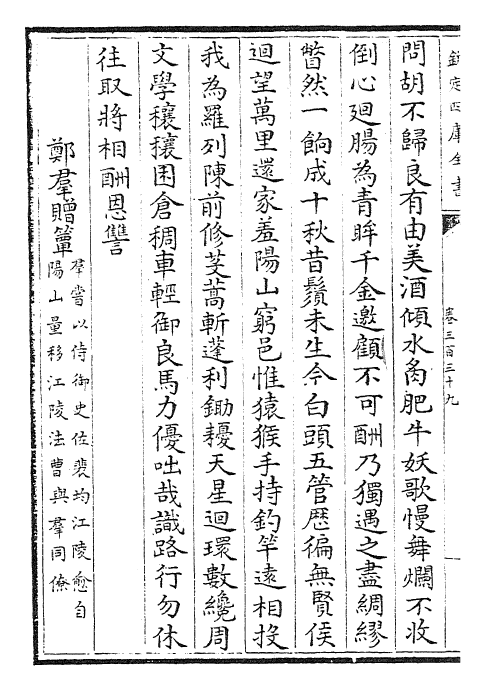 欽定四庫全書
卷三百三十九
問胡不歸良有由美酒傾水㐫肥牛妖歌慢舞爛不收
倒心廻腸為青眸千金邀顧不可酬乃獨遇之盡綢繆
瞥然一餉成十秋昔鬚未生今白頭五管歷徧無賢侯
迴望萬里還家羞陽山窮邑惟猿猴手持釣竿遠相投
我為羅列陳前修芟蒿斬蓬利鋤耰天星迴環數纔周
文學穰穰囷倉稠車輕御良馬力優咄哉識路行勿休
往取將相酬恩讐
鄭羣贈簟羣嘗以侍御史佐裴均江陵愈自
陽山量移江陵法曹與羣同僚